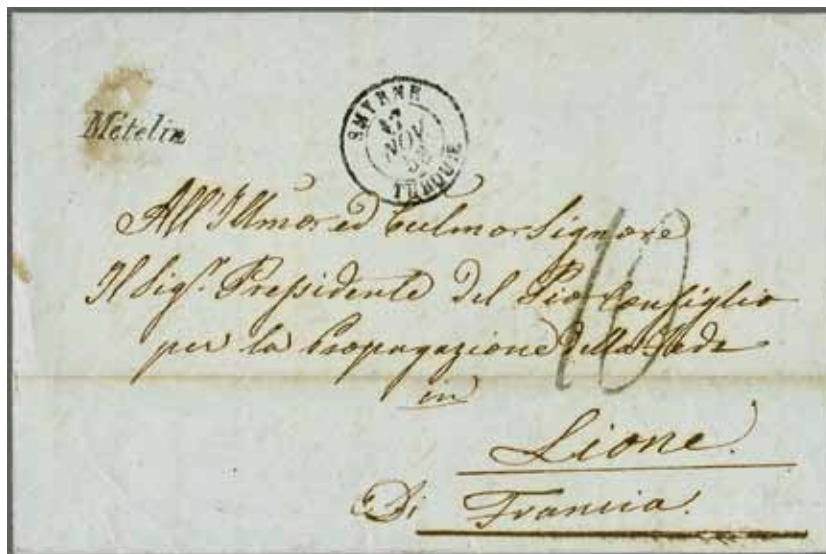 Métélin
SMYRNE
17
NOV
TURQUIE
All'Illmo ed Eculmo Signore
Il Sigr. Presidente del Pio Consiglio
per la Propagazione della Fede
in
10
Lione.
Di Francia.